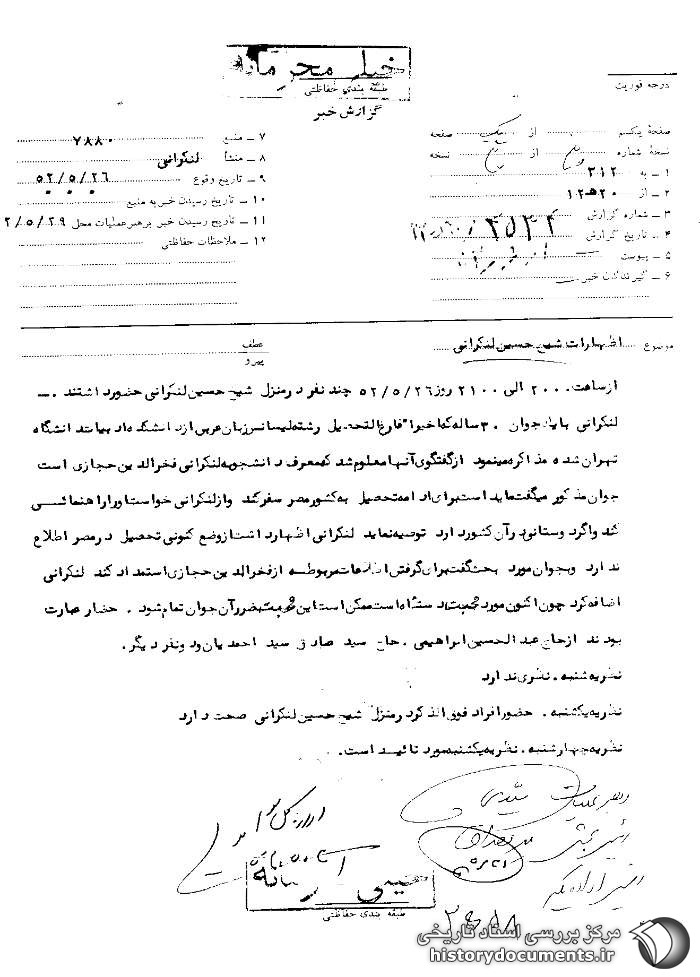 خیلی محرمانه
طبقه بندی حفاظتی
گزارش خبر
درجه فوریت
صفحه یکم از یک صفحه
نسخه شماره از نسخه
۱ ـ به ۳۱۲
۲ ـ از ۲۰ هـ ۱۲
۳ ـ شماره گزارش
۴ ـ تاریخ گزارش
۵ ـ پیوست
۶ ـ گیرندگان خبر
۷ ـ منبع ۷۸۸۰
۸ ـ منشأ لنکرانی
۹ ـ تاریخ وقوع ۵۲/۵/۲۶
۱۰ ـ تاریخ رسیدن خبر به منبع
۱۱ ـ تاریخ رسیدن خبر برهبر عملیات محل ۲/۵/۲۹
۱۲ ـ ملاحظات حفاظتی
موضوع اظهارات شیخ حسین لنکرانی
عطف
پیرو
از ساعت ۲۰۰۰ الی ۲۱۰۰ روز ۵۲/۵/۲۶ چند نفر در منزل شیخ حسین لنکرانی حضور داشتند ـ
لنکرانی با یک جوان ۳۰ ساله که اخیرا" فارغ التحصیل رشته لیسانس زبان عربی از دانشکده ادبیات دانشگاه
تهران شده مذاکره مینمود از گفتگوی آنها معلوم شد که معرف دانشجو به لنکرانی فخرالدین حجازی است
جوان مذکور میگفت مایل است برای ادامه تحصیل به کشور مصر سفر کند و از لنکرانی خواست او را راهنمائی
کند و اگر دوستانی در آن کشور دارد توصیه نماید لنکرانی اظهار داشت از وضع کنونی تحصیل در مصر اطلاع
ندارد و بجوان مورد بحث گفت برای گرفتن اطلاعات مربوطه از فخرالدین حجازی استمداد کند لنکرانی
اضافه کرد چون اکنون مورد محبت دستگاه است ممکن است این محبت بضرر آن جوان تمام شود . حضار عبارت
بودند از حاج عبدالحسین ابراهیمی . حاج سید صادق سید احمدیان و دو نفر دیگر .
نظریه شنبه . نظری ندارد
نظریه یکشنبه . حضور افراد فوق الذکر در منزل شیخ حسین لنکرانی صحت دارد
نظریه چهارشنبه . نظریه یکشنبه مورد تائید است .
رهبر عملیات
خیلی محرمانه
طبقه بندی حفاظتی
مرکز بررسی اسناد تاریخی
historydocuments.ir